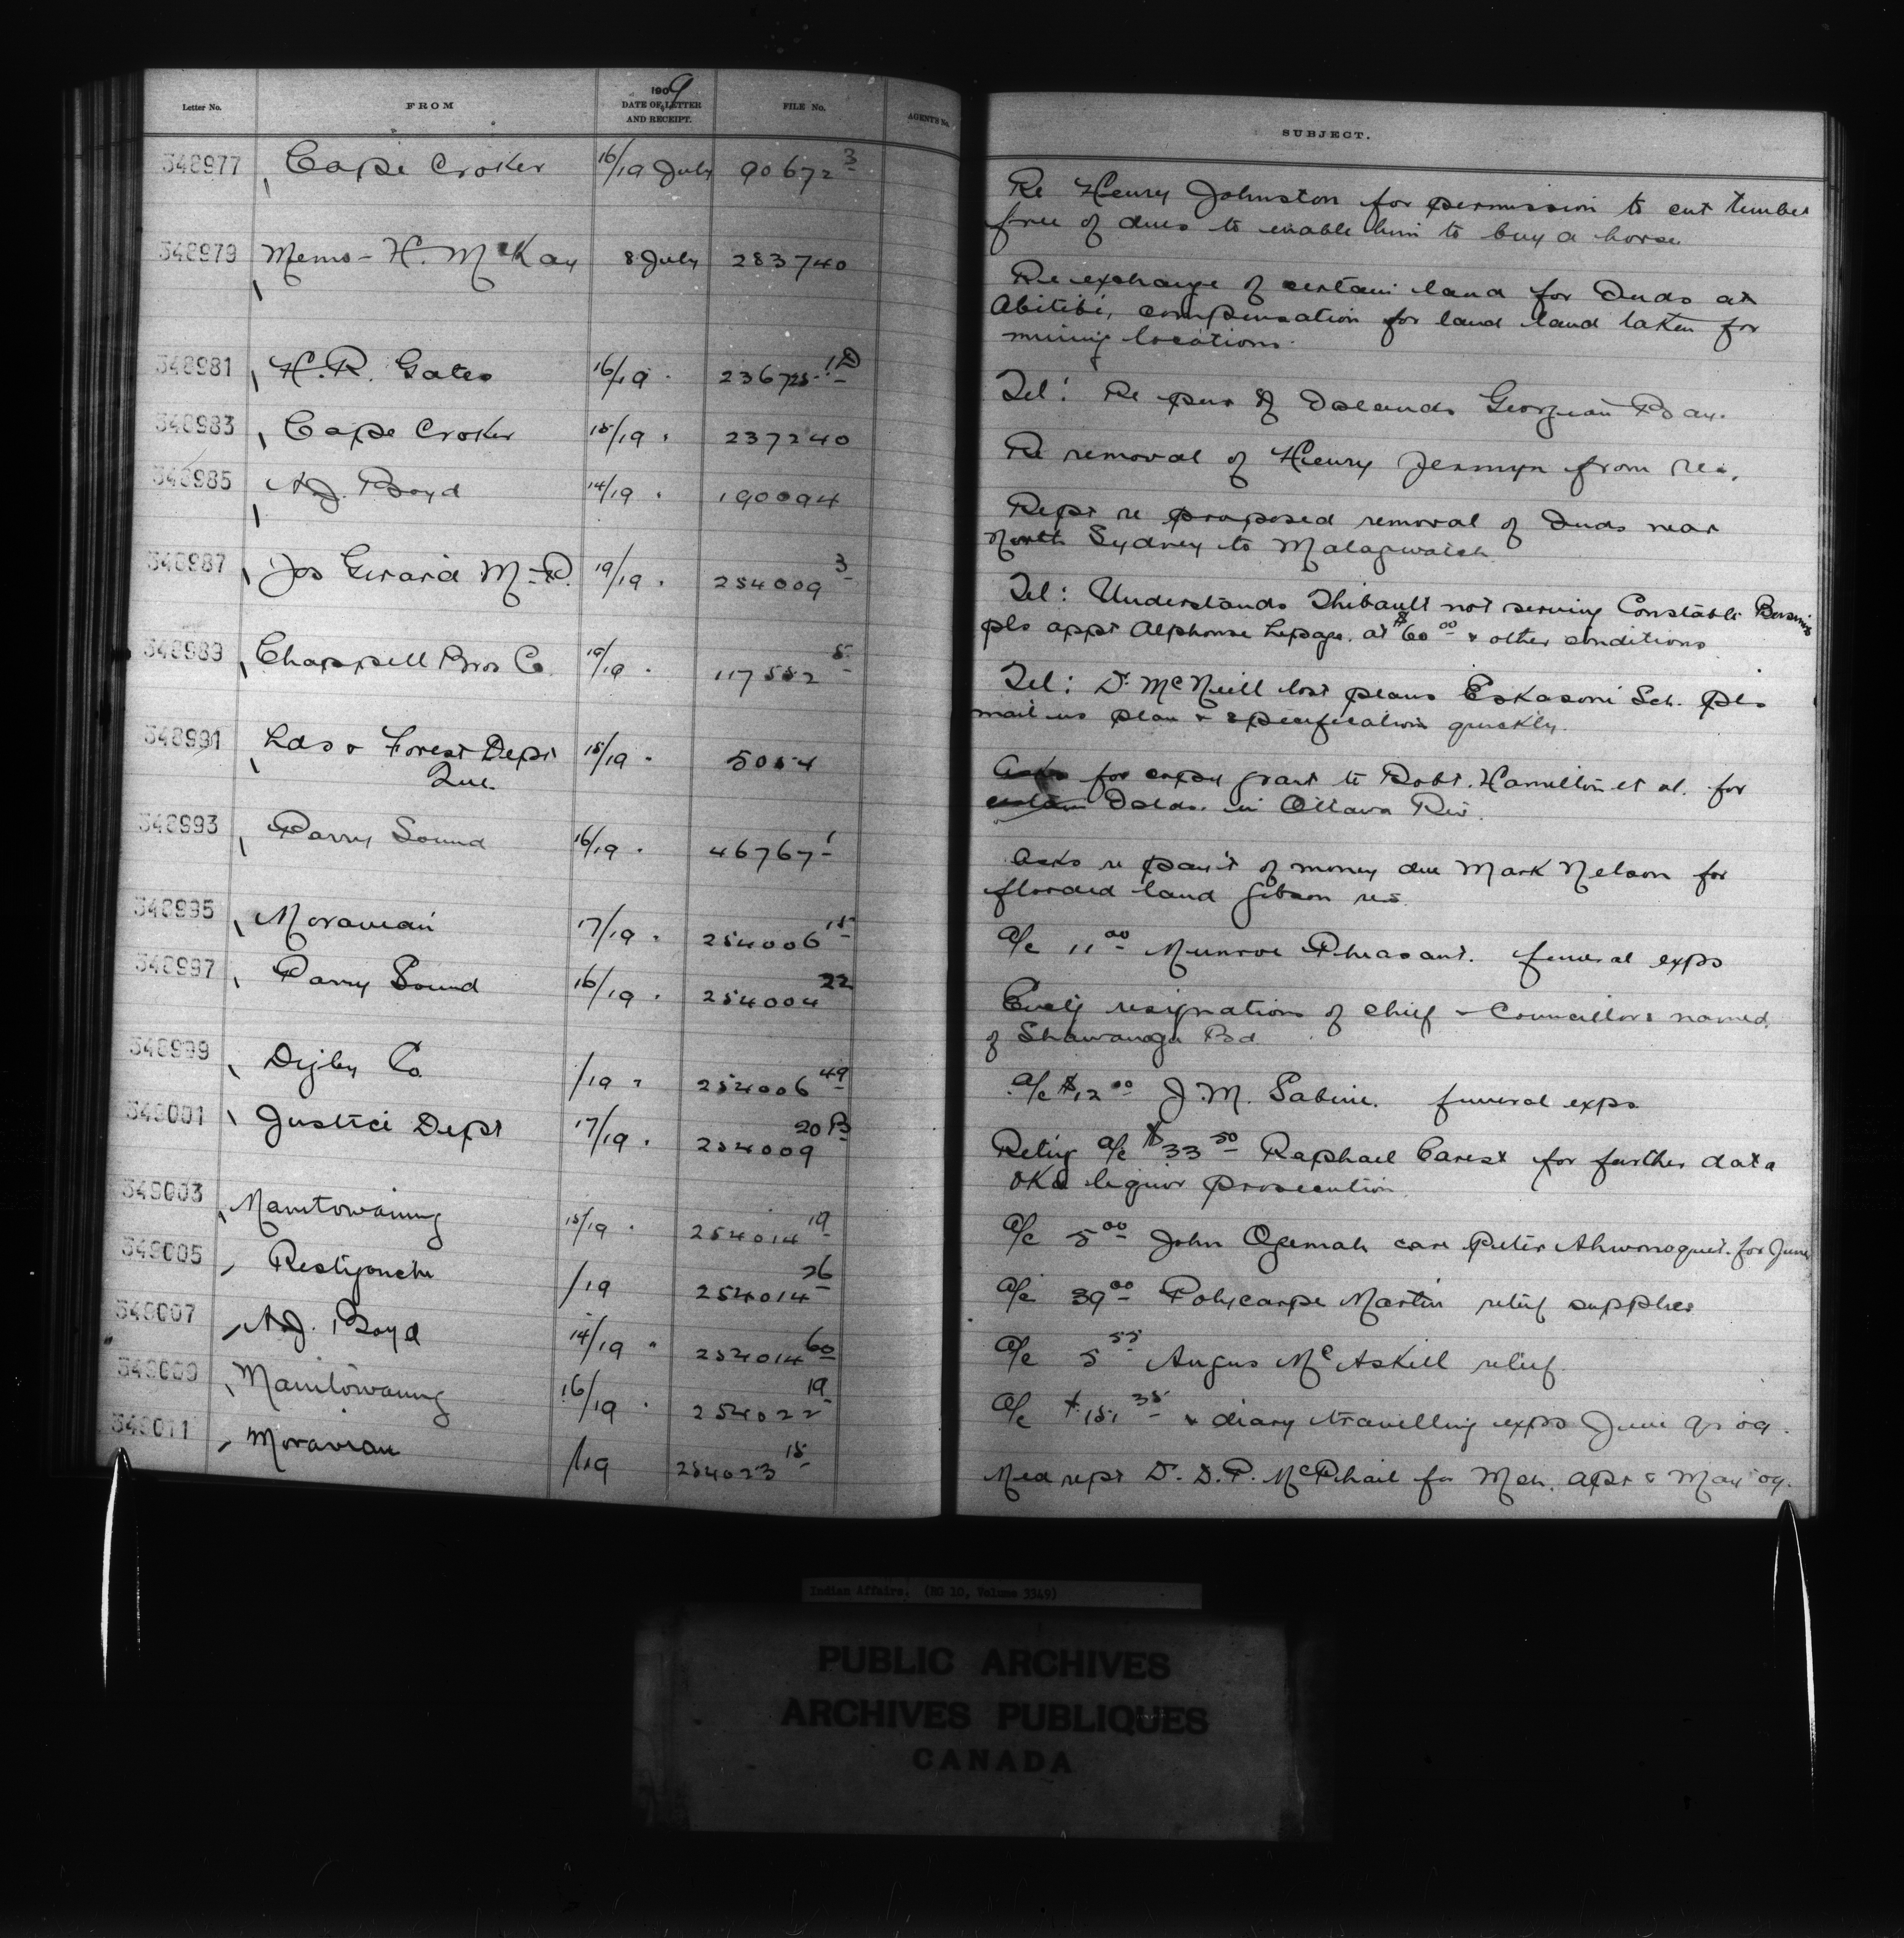 Letter No. FROM 1909 DATE OF LETTER AND RECEIPT. FILE No. AGENT'S No. SUBJECT.
348977 Cape Croker 16/19 July 90672 3 Re Henry Johnston for permission to cut timber
free of dues to enable him to buy a horse
348979 Memo - H. McKay 8 July 283740 Re exchange of certain land for Inds at
Abitibi, compensation for land land taken for
mining locations.
348981 H.R. Gates 16/19 " 236725 1D Tel: Re pur of Islands Georgian Bay.
348983 Cape Croker 15/19 " 237240 Re removal of Henry Jermyn from res.
348985 A.J. Boyd 14/19 " 190094 Rept re proposed removal of Inds near
North Sydney to Malagwatch
348987 Jos Girard M.P. 19/19 " 254009 3 Tel: Understands Thibault not serving Constable Bersimis
pls appt Alphonse Lepage. at $60 00 & other conditions
348989 Chappell Bros Co. 19/19 " 117552 5 Tel: Dr McNeill lost plans Eskasoni Sch. pls
mail us plan & specification quickly.
348991 Lds & Forest Dept 15/19 " 5054 Asks for copy grant to Robt. Hamilton et al. for
Que. certain Islds. in Ottawa Riv.
348993 Parry Sound 16/19 " 46767 1 Asks re paym't of money due Mark Nelson for
flooded land Gibson res.
348995 Moravian 17/19 " 254006 15 a/c 11 00 Munroe Pheasant. funeral exps
348997 Parry Sound 16/19 " 254004 22 resignations of chief & Councillors named,
of Shawanaga Bd.
348999 Digby Co. /19 " 254006 49 a/c $12 00 J.M. Sabine. funeral exps
349001 Justice Dept 17/19 " 254009 20B Retig a/c $33 50 Raphael Carest for further data
Oka liquor prosecution
349003 Manitowaning 15/19 " 254014 19 a/c 5 00 John Ogemah care Peter for June
349005 Restigouche /19 254014 26 a/c 39 00 Polycarpe Martin relief supplies
349007 A.J. Boyd 14/19 " 254014 60 a/c 5 55 Angus McAskill relief.
349009 Manitowaning 16/19 " 254022 19 a/c $151 35 & diary travelling exps June qr 09.
349011 Moravian /19 254023 15 Med rept Dr. D.P. McPhail for Mch. Apr & May 09.
Indian Affairs. (RG 10, Volume 3349)
PUBLIC ARCHIVES
ARCHIVES PUBLIQUES
CANADA